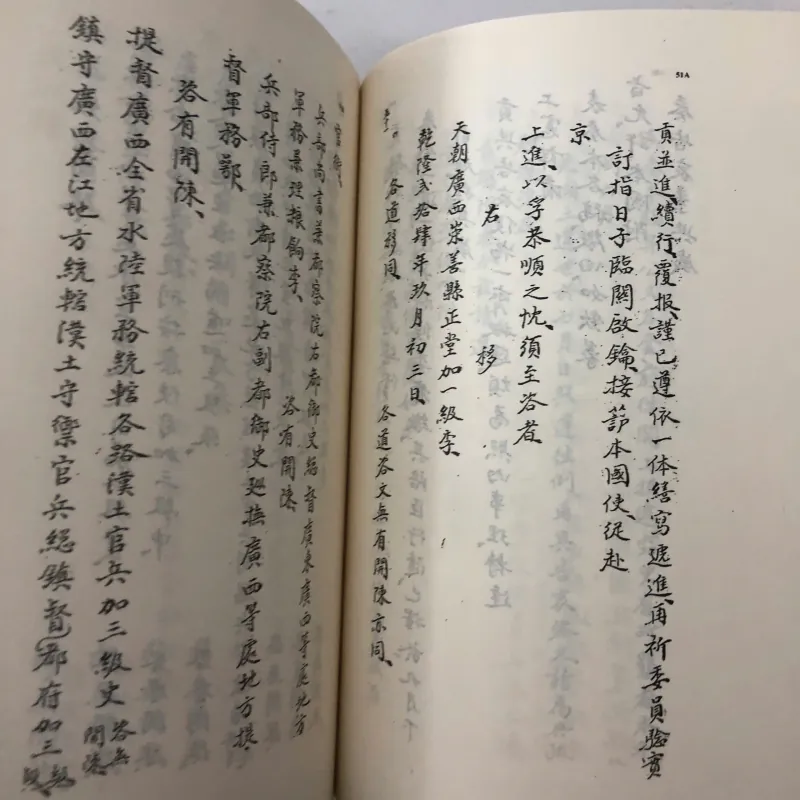 51A
貢並進、續行覆报、謹已遵依一体繕寫遞進、再祈委員驗實
訂指日子臨關啟鑰、接莭本國使、従赴
京
上進、以孚恭順之忱、須至咨者、
右 移
天朝廣西崇善縣正堂加一級李、
乾隆貳拾肆年玖月初三日、
各道移同、 各道咨文無有開陳亦同、
官銜、
兵部尚書兼都察院右都御史総督廣東廣西等處地方
軍務兼理粮餉李、 咨有開陳、
兵部侍郎兼都察院右副都御史廵撫廣西等處地方提
督軍務鄂、
咨有開陳、
提督廣西全省水陸軍務統轄各路漢土官兵加三級史 咨無開陳
鎮守廣西左江地方統轄漢土守禦官兵総鎮督都府加三級